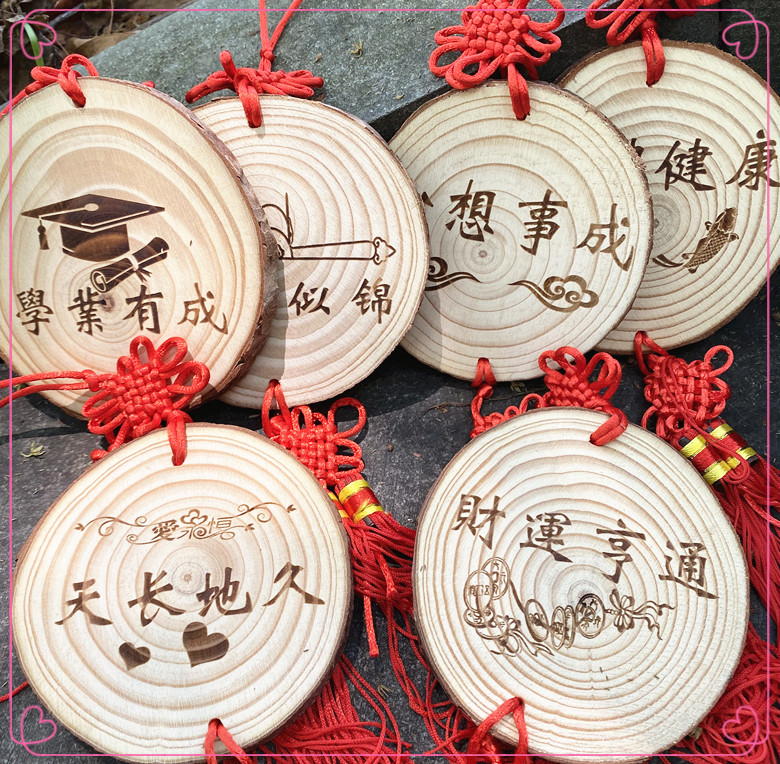 學業有成
似锦
想事成
健康
愛永恒
天长地久
財運亨通